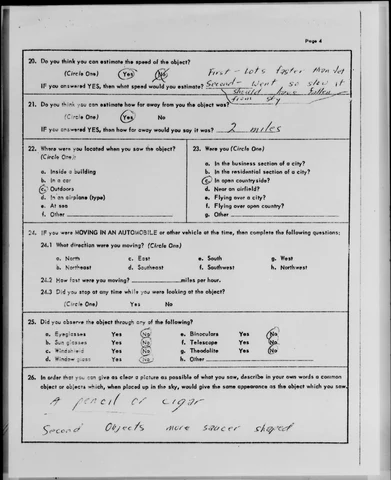 Page 4
20. Do you think you can estimate the speed of the object?
(Circle One) Yes No
First - Lots faster than Jet
IF you answered YES, then what speed would you estimate? Second - Went so slow it
should have fallen
from sky
21. Do you think you can estimate how far away from you the object was?
(Circle One) Yes No
IF you answered YES, then how far away would you say it was? 2 miles
22. Where were you located when you saw the object?
(Circle One):
a. Inside a building
b. In a car
c. Outdoors
d. In an airplane (type)
e. At sea
f. Other
23. Were you (Circle One)
a. In the business section of a city?
b. In the residential section of a city?
c. In open countryside?
d. Near an airfield?
e. Flying over a city?
f. Flying over open country?
g. Other
24. IF you were MOVING IN AN AUTOMOBILE or other vehicle at the time, then complete the following questions:
24.1 What direction were you moving? (Circle One)
a. North c. East e. South g. West
b. Northeast d. Southeast f. Southwest h. Northwest
24.2 How fast were you moving? miles per hour.
24.3 Did you stop at any time while you were looking at the object?
(Circle One) Yes No
25. Did you observe the object through any of the following?
a. Eyeglasses Yes No e. Binoculars Yes No
b. Sun glasses Yes No f. Telescope Yes No
c. Windshield Yes No g. Theodolite Yes No
d. Window glass Yes No h. Other
26. In order that you can give as clear a picture as possible of what you saw, describe in your own words a common
object or objects which, when placed up in the sky, would give the same appearance as the object which you saw.
A pencil or cigar
Second Objects more saucer shaped